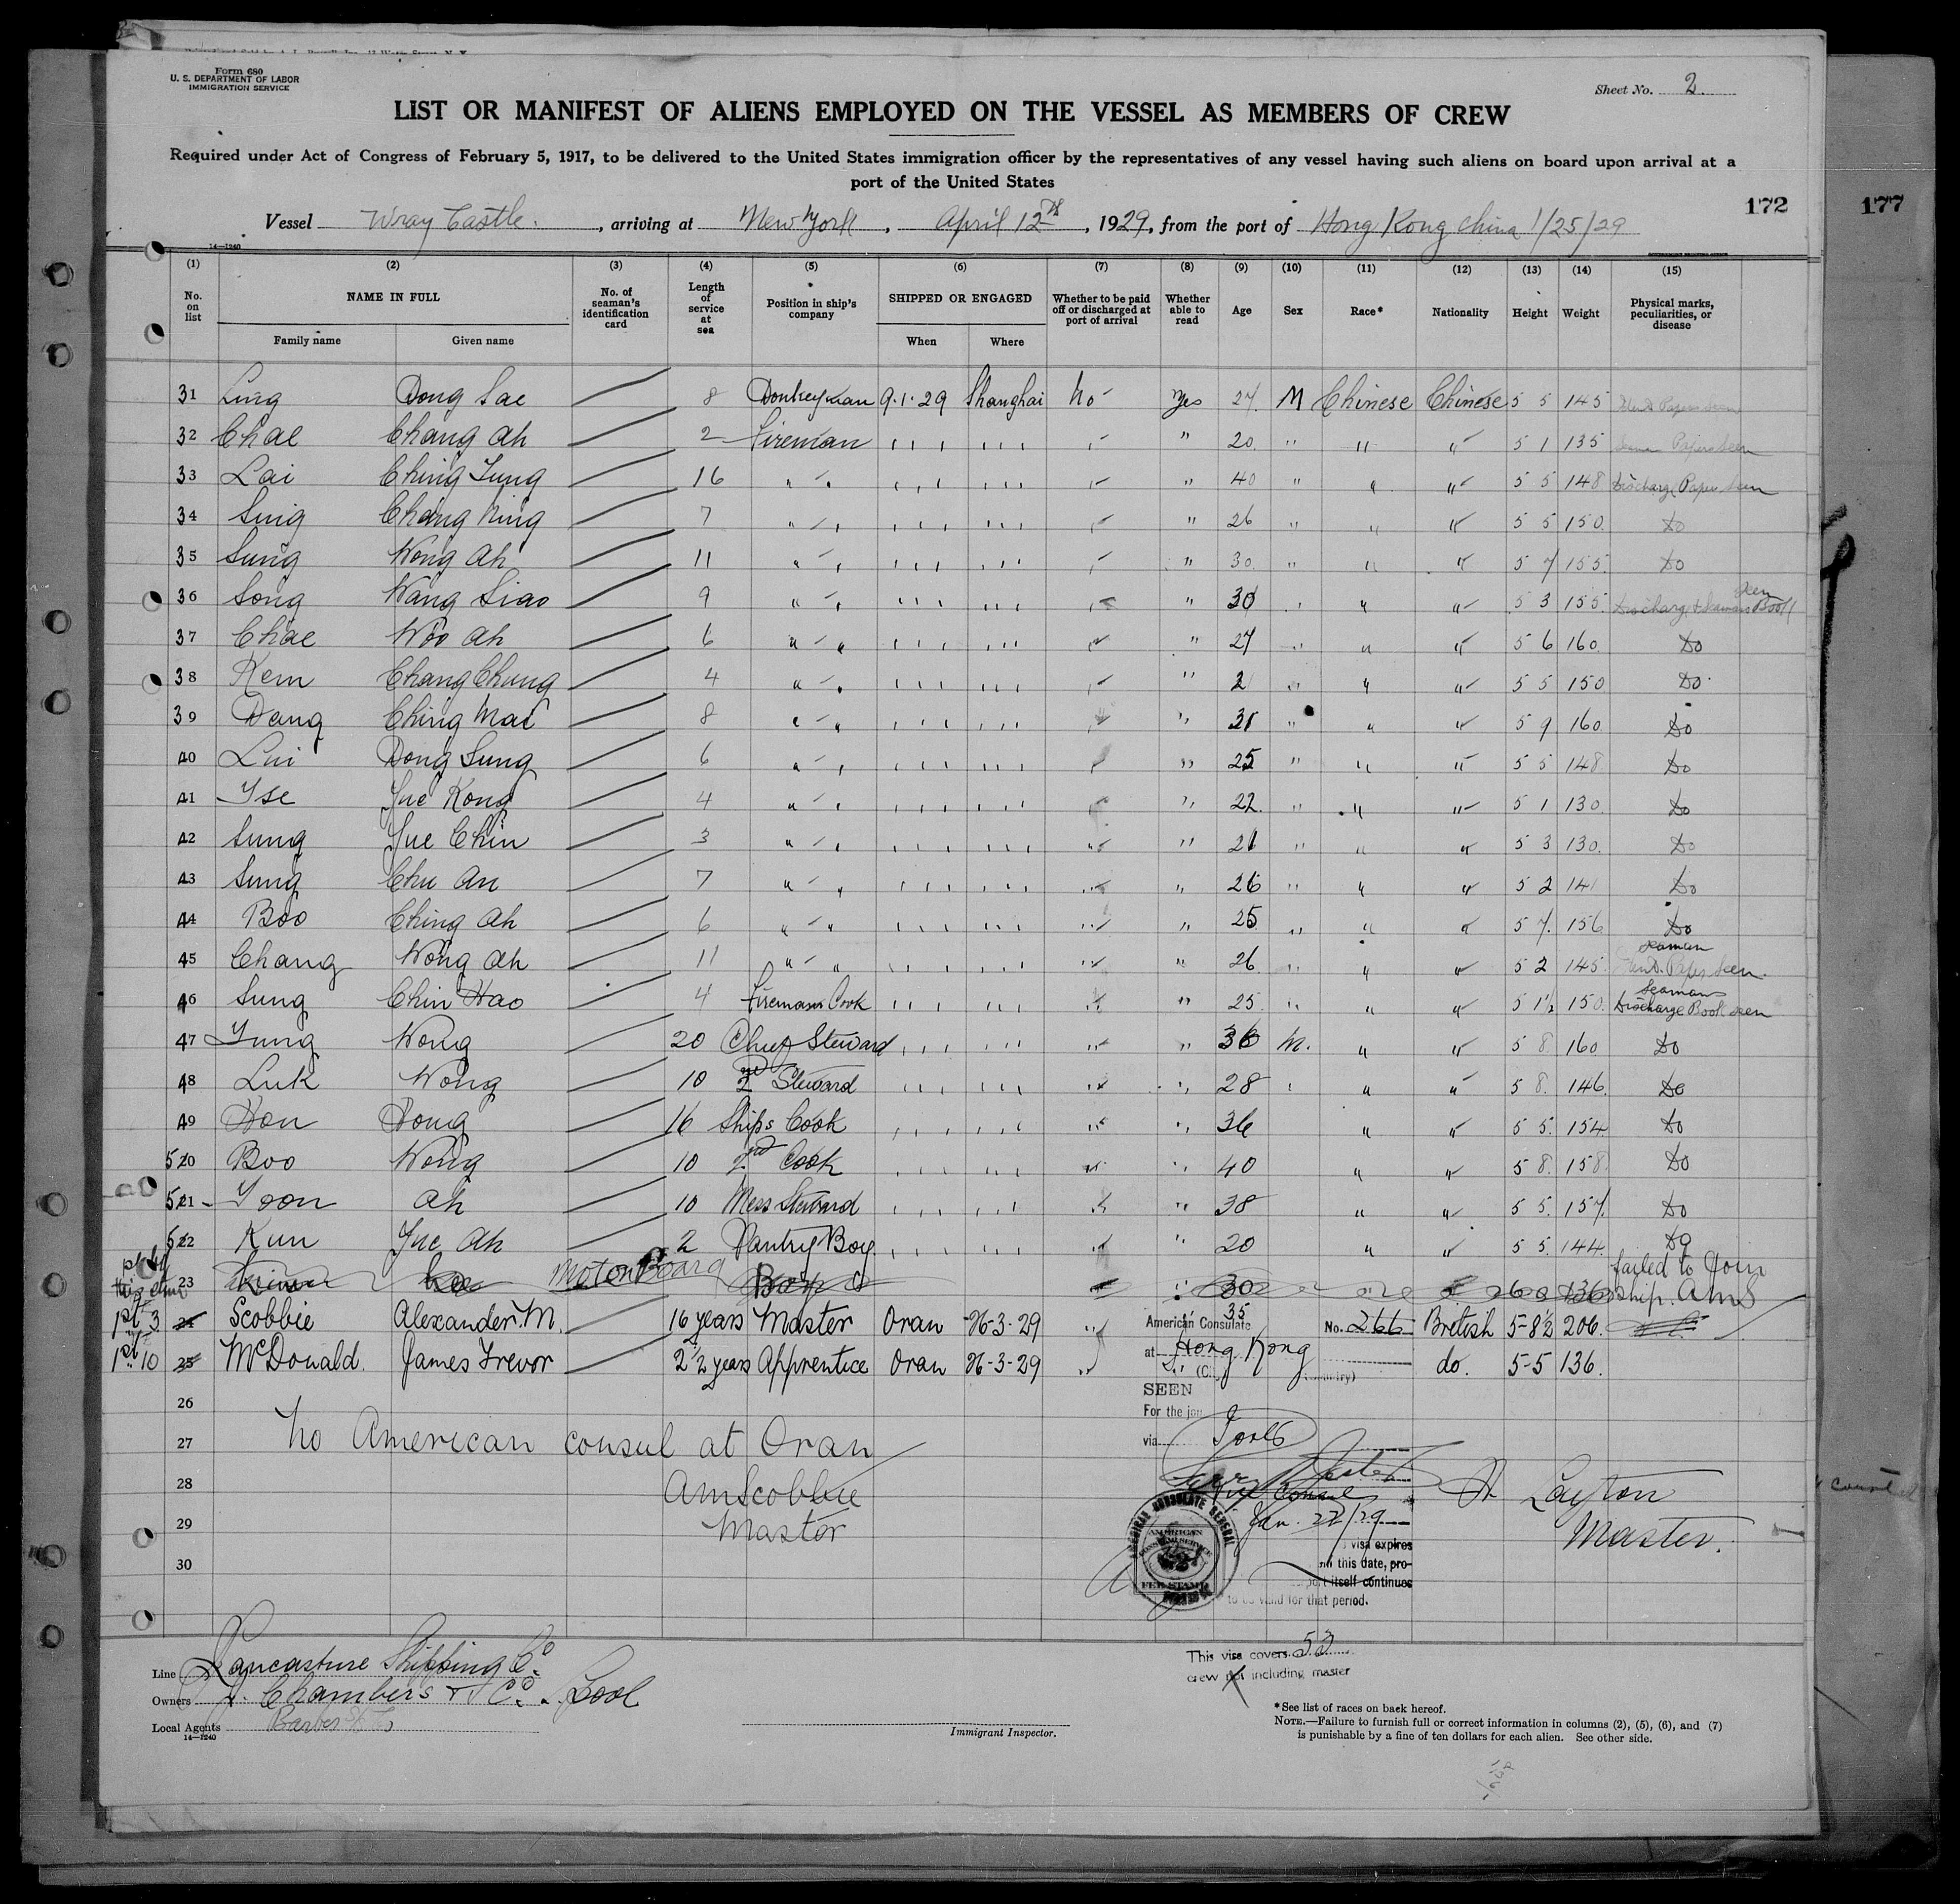 Form 680
U. S. DEPARTMENT OF LABOR
IMMIGRATION SERVICE
Sheet No. 2.
LIST OR MANIFEST OF ALIENS EMPLOYED ON THE VESSEL AS MEMBERS OF CREW
Required under Act of Congress of February 5, 1917, to be delivered to the United States immigration officer by the representatives of any vessel having such aliens on board upon arrival at a
port of the United States
172
177
Vessel Wray Castle. , arriving at New York , April 12th , 1929, from the port of Hong Kong China 1/25/29
14—1240
(1) (2) (3) (4) (5) (6) (7) (8) (9) (10) (11) (12) (13) (14) (15)
No. on list NAME IN FULL No. of seaman's identification card Length of service at sea Position in ship's company SHIPPED OR ENGAGED Whether to be paid off or discharged at port of arrival Whether able to read Age Sex Race* Nationality Height Weight Physical marks, peculiarities, or disease
Family name Given name When Where
31 Ling Dong Sae 8 Donkeyman 9.1.29 Shanghai No Yes 27. M Chinese Chinese 5 5 145 Papers Seen
32 Chae Chang Ah 2 Fireman ,, ,, " 20. " " " 5 1 135 Seaman Papers Seen
33 Lai Ching Tung 16 " " " " 40 " " " 5 5 148 Discharge Paper Seen
34 Sing Chang Ning 7 " " " " 26 " " " 5 5 150. Do
35 Sung Wong Ah 11 " " " " 30. " " " 5 7 155. Do
36 Song Wang Siao 9 " " " " 30 " " " 5 3 155. Discharge & Seamans Book Seen
37 Chae Woo Ah 6 " " " " 27 " " " 5 6 160. Do
38 Kem Chang Chung 4 " " " " 2 " " " 5 5 150 Do
39 Dang Ching Mae 8 " " " " 31 " " " 5 9 160 Do
40 Lui Dong Sung 6 " " " " 25 " " " 5 5 148. Do
41 Yse Jue Kong 4 " " " " 22. " " " 5 1 130. Do
42 Sung Jue Chin 3 " " " " 21 " " " 5 3 130. Do
43 Sung Chu An 7 " " " " 26 " " " 5 2 141 Do
44 Boo Ching Ah 6 " " " " 25. " " " 5 7. 156 Do
45 Chang Wong Ah 11 " " " " 26 " " " 5 2 145. Seaman Paper Seen.
46 Sung Chin Hao 4 Firemans Cook " " " 25. " " " 5 1½ 150. Seamans Discharge Book Seen
47 Yung Wong 20 Chief Steward " " " 36 M. " " 5 8 160 Do
48 Luk Wong 10 2nd Steward " " " 28 " " 5 8. 146. Do
49 Hon Hong 16 Ships Cook " " " 36 " " 5 5. 154 Do
50 Boo Wong 10 2nd Cook " " " 40 " " 5 8. 158. Do
51 Yoon Ah 10 Mess Steward " " " 38 " " 5 5. 157. Do
52 Kun Jue Ah 2 Pantry Boy " " " 20 " " 5 5. 144. Do
23 Not on Board Boy 30 136 failed to Join Ship. AMS
1st 3 24 Scobbie Alexander. M. 16 years Master Oran 26-3-29 35 British 5-8½ 206.
1st 10 25 McDonald. James Trevor 2½ years Apprentice Oran 26-3-29 do. 5-5 136.
American Consulate No. 266
at Hong Kong
SEEN
For the jou
via
26
27 No American consul at Oran
28 AMScobbie
29 Master
30
Vice Consul
Jan. 22/29
visa expires
this date, pro-
itself continues
to be valid for that period.
AMERICAN CONSULATE GENERAL
AMERICAN
CONSULAR SERVICE
FEE STAMP
H Layton
Master.
Line Lancashire Shipping Co.
Owners J. Chambers & Co. Lpool
Local Agents Barber
14—1240
Immigrant Inspector.
This visa covers 53
crew not including master
*See list of races on back hereof.
NOTE.—Failure to furnish full or correct information in columns (2), (5), (6), and (7)
is punishable by a fine of ten dollars for each alien. See other side.